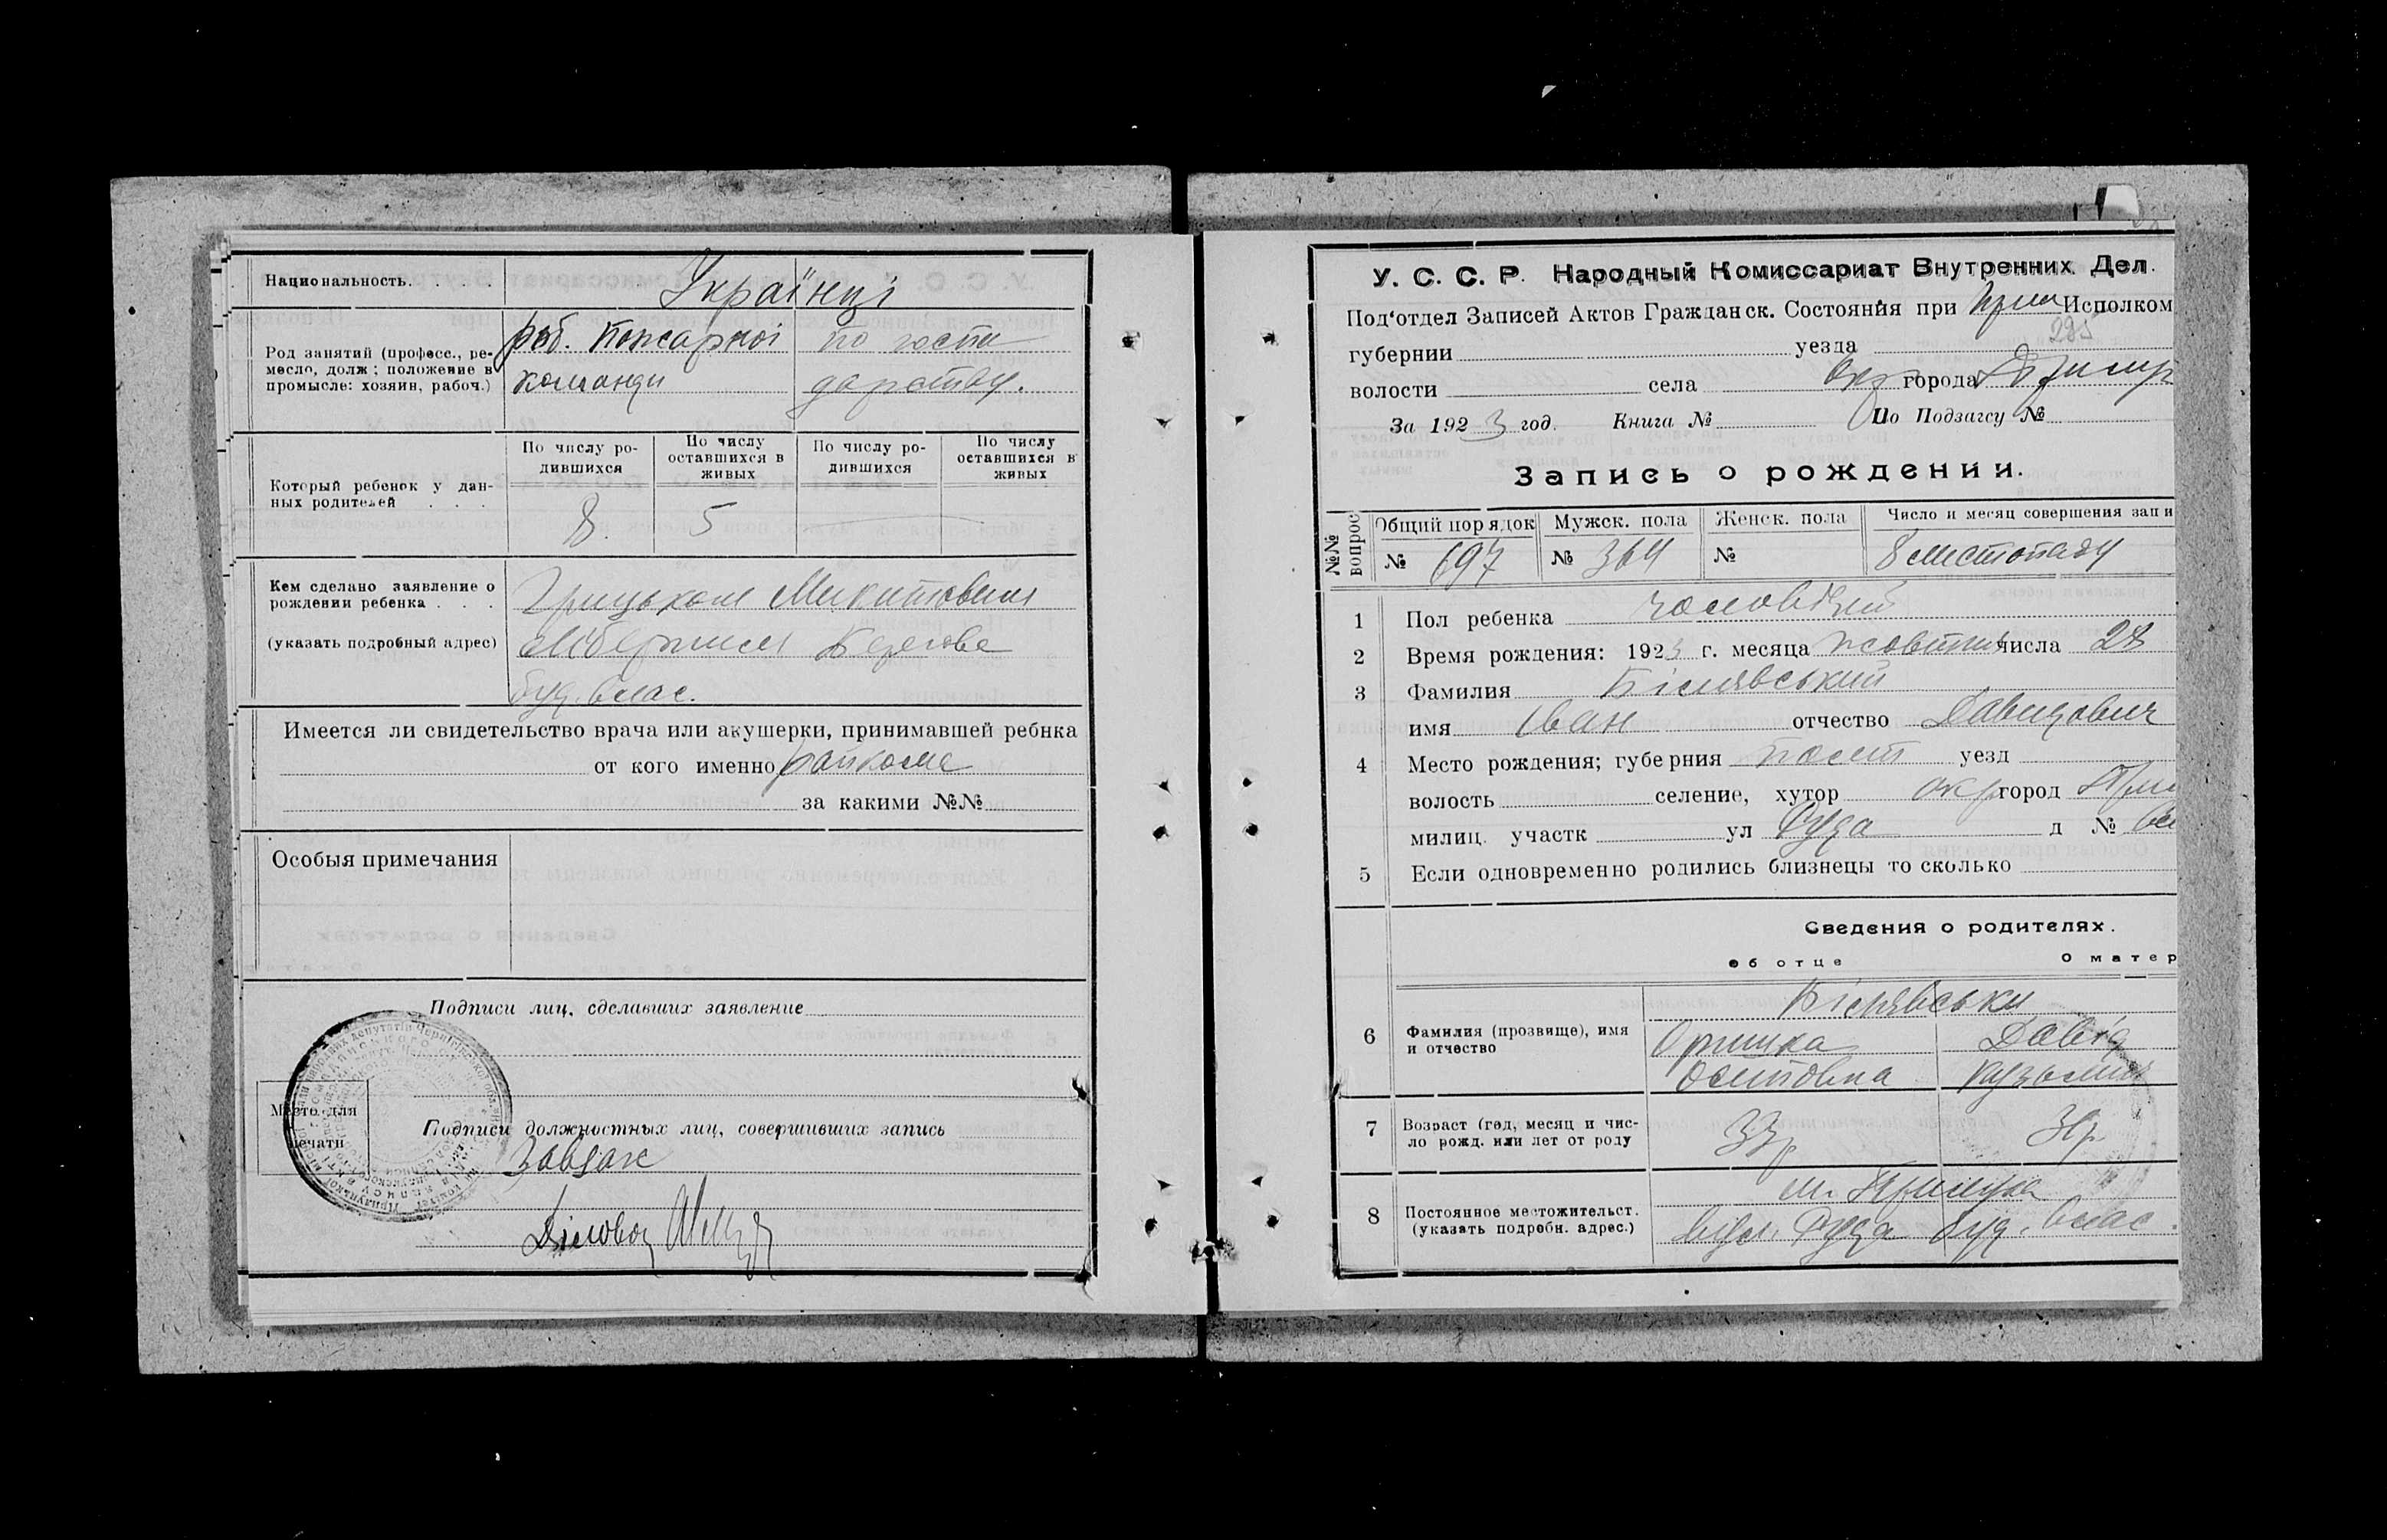 Национальность. . . .
Українці
Род занятий (професс., ре-
месло, долж; положение в
промысле: хозяин, рабоч.)
роб. Пожарної
команди
по госпо
дарству.
Который ребенок у дан-
ных родителей . . .
По числу ро-
дившихся
По числу
оставшихся в
живых
По числу ро-
дившихся
По числу
оставшихся в
живых
8. 5
Кем сделано заявление о
рождении ребенка . . .
(указать подробный адрес)
Грицьком Микитовичем
буд. влас.
Имеется ли свидетельство врача или акушерки, принимавшей ребнка
от кого именно
за какими №№
Особыя примечания
Подписи лиц, сделавших заявление
Место для
печати
Подписи должностных лиц, совершивших запись
Завзаг
Діловод
У. С. С. Р. Народный Комиссариат Внутренних Дел.
Под‘отдел Записей Актов Гражданск. Состояния при Прил Исполком
295
губернии уезда
волости села окр города Прилур
За 1923 год. Книга № По Подзагсу №
Запись о рождении.
№№
вопрос
Общий порядок
Мужск. пола
Женск. пола
Число и месяц совершения запи
№ 697 № 364 № 8 листопаду
1 Пол ребенка чоловічий
2 Время рождения: 1923 г. месяца жовтня числа 28
3 Фамилия Білявський
имя Іван отчество Давидович
4 Место рождения; губерния Полт уезд
волость селение, хутор окр город При
милиц. участк ул д № вл
5 Если одновременно родились близнецы то сколько
Сведения о родителях.
об отце О матер
6 Фамилия (прозвище), имя
и отчество
Білявськи
Оришка
Осиповна
Давід
Кузьмич
7 Возраст (год, месяц и чис-
ло рожд. или лет от роду
33р
8 Постоянное местожительст.
(указать подробн. адрес.)
м. Прилука
вул. буд. влас.